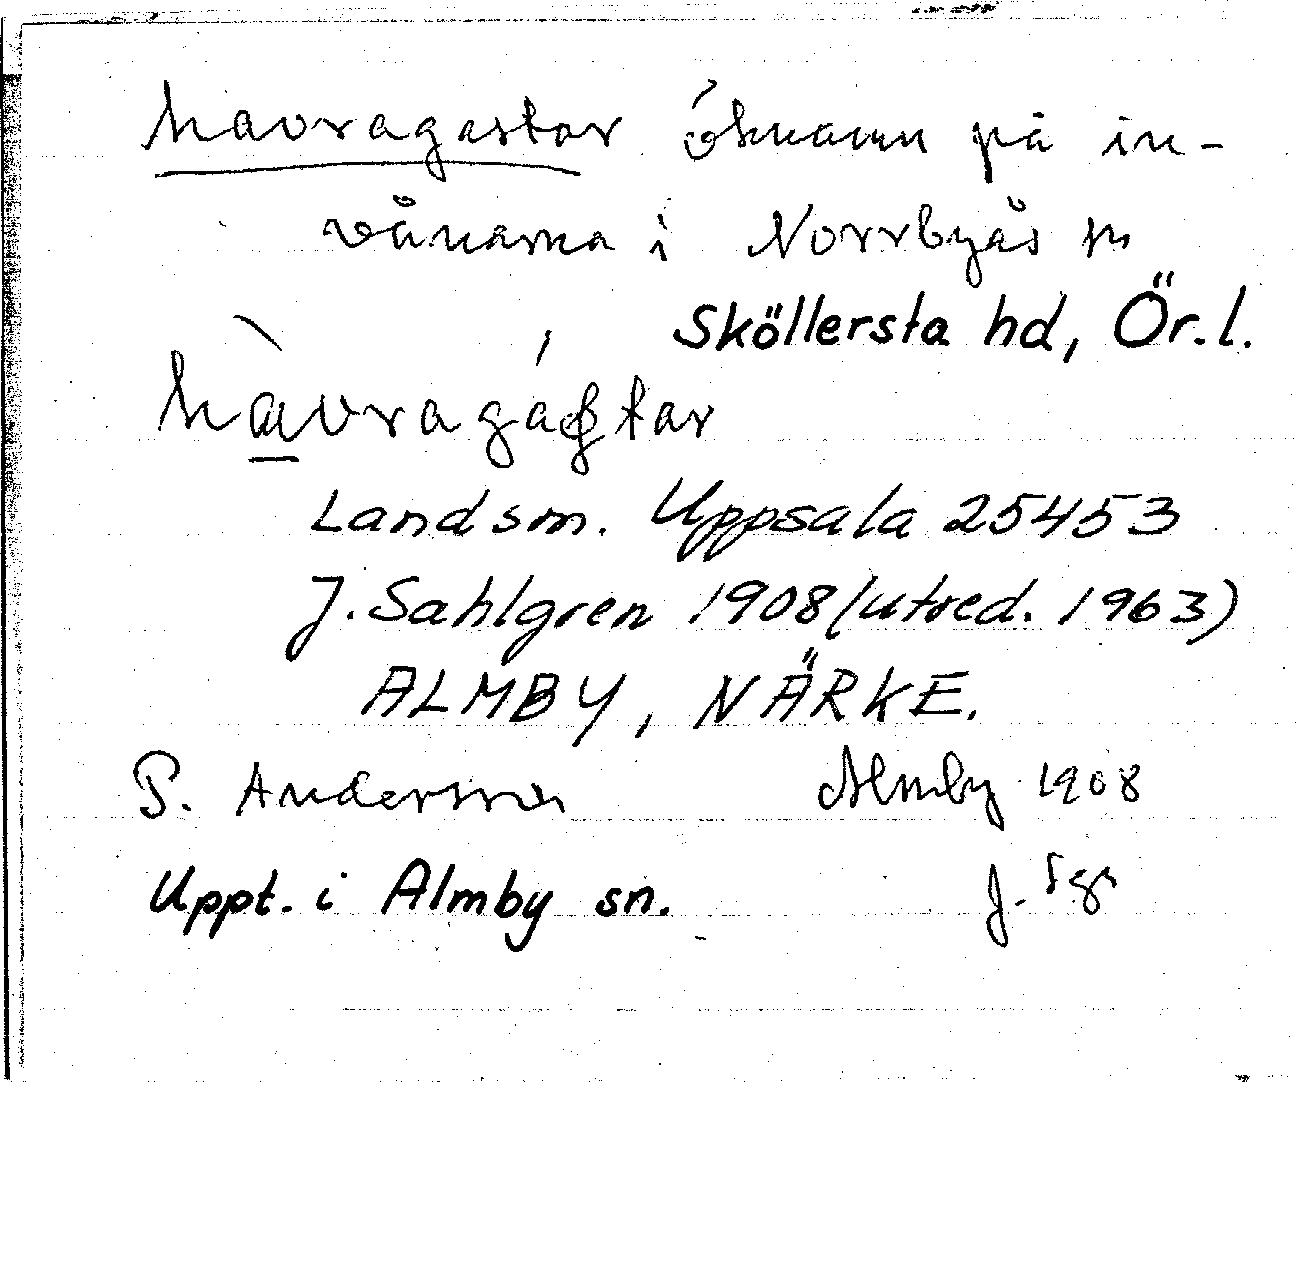 havragastar öknamn på in-
vånarna i Norrbyås sn
Sköllersta hd, Ör.l.
hàvragástar
Landsm. Uppsala 25453
J. Sahlgren 1908 (utred. 1963)
ALMBY, NÄRKE.
P. Andersson Almby 1908
Uppt. i Almby sn. J. Sgn